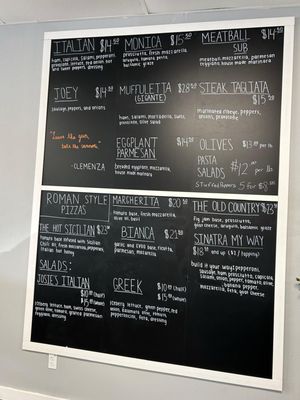 ITALIAN $14.50
ham, capicola, salami, pepperoni,
provolone, lettuce, red onion, hot
and sweet peppers, dressing
MONICA $15.50
prosciutto, fresh mozzarella,
arugula, tomato, pesto,
balsamic glaze
MEATBALL $14.50
SUB
meatballs, mozzarella, parmesan
reggiano, house made marinara
JOEY $14.50
Sausage, peppers, and onions
MUFFULETTA $28.50
(GIGANTE)
ham, salami, mortadella, swiss,
provolone, olive salad
STEAK TAGLIATA
$15.50
Marinated cheese, peppers,
onions, provolone
"Leave the gun,
take the cannoli"
-CLEMENZA
EGGPLANT $14.50
PARMESAN
breaded eggplant, mozzarella,
house made marinara
OLIVES $13.00 per lb
PASTA
SALADS $12.00 per lb
Stuffed Peppers 5 for $8
ROMAN STYLE
PIZZAS
THE HOT SICILIAN $23.00
tomato base infused with Sicilian
Chili oil, fresh mozzarella, pepperoni,
Italian hot honey
MARGHERITA $20.50
tomato base, fresh mozzarella,
olive oil, basil
BIANCA $21.00
garlic and EVOO base, ricotta,
parmesan, mozzarella
THE OLD COUNTRY $23.50
fig jam base, prosciutto,
goat cheese, arugula, balsamic glaze
SINATRA MY WAY
$18.00 and up ($1 / topping)
build it your way: pepperoni,
sausage, ham, prosciutto, capicola,
salami, onion, pepper, tomato, olive,
banana pepper,
mozzarella, feta, goat cheese
SALADS:
JOSIE'S ITALIAN
$10.00 (half)
$15.00 (whole)
iceberg lettuce, ham, swiss cheese,
onion, olive, tomato, grana parmesan,
eggplant, dressing
GREEK $10.00 (half)
$15.00 (whole)
iceberg lettuce, green pepper, red
onion, kalamata olive, tomato,
pepperoncini, feta, dressing